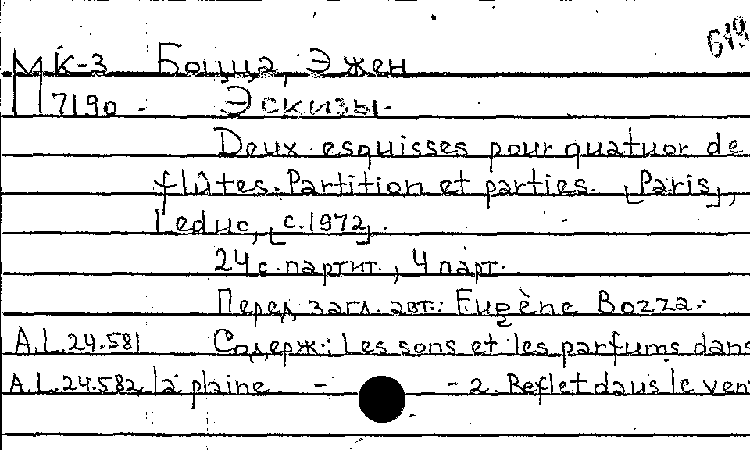 МК-3 Боцца, Эжен
7190. Эскизы.
Deux esquisses pour quatuor de
flûtes. Partition et parties. [Paris],
Leduc, [c.1972].
24 с. партит., 4 парт.
Перед загл. авт.: Eugène Bozza.
A.L.24.581 Содерж.: Les sons et les parfums dans
A.L.24.582. la plaine - - 2. Reflet dans le ven